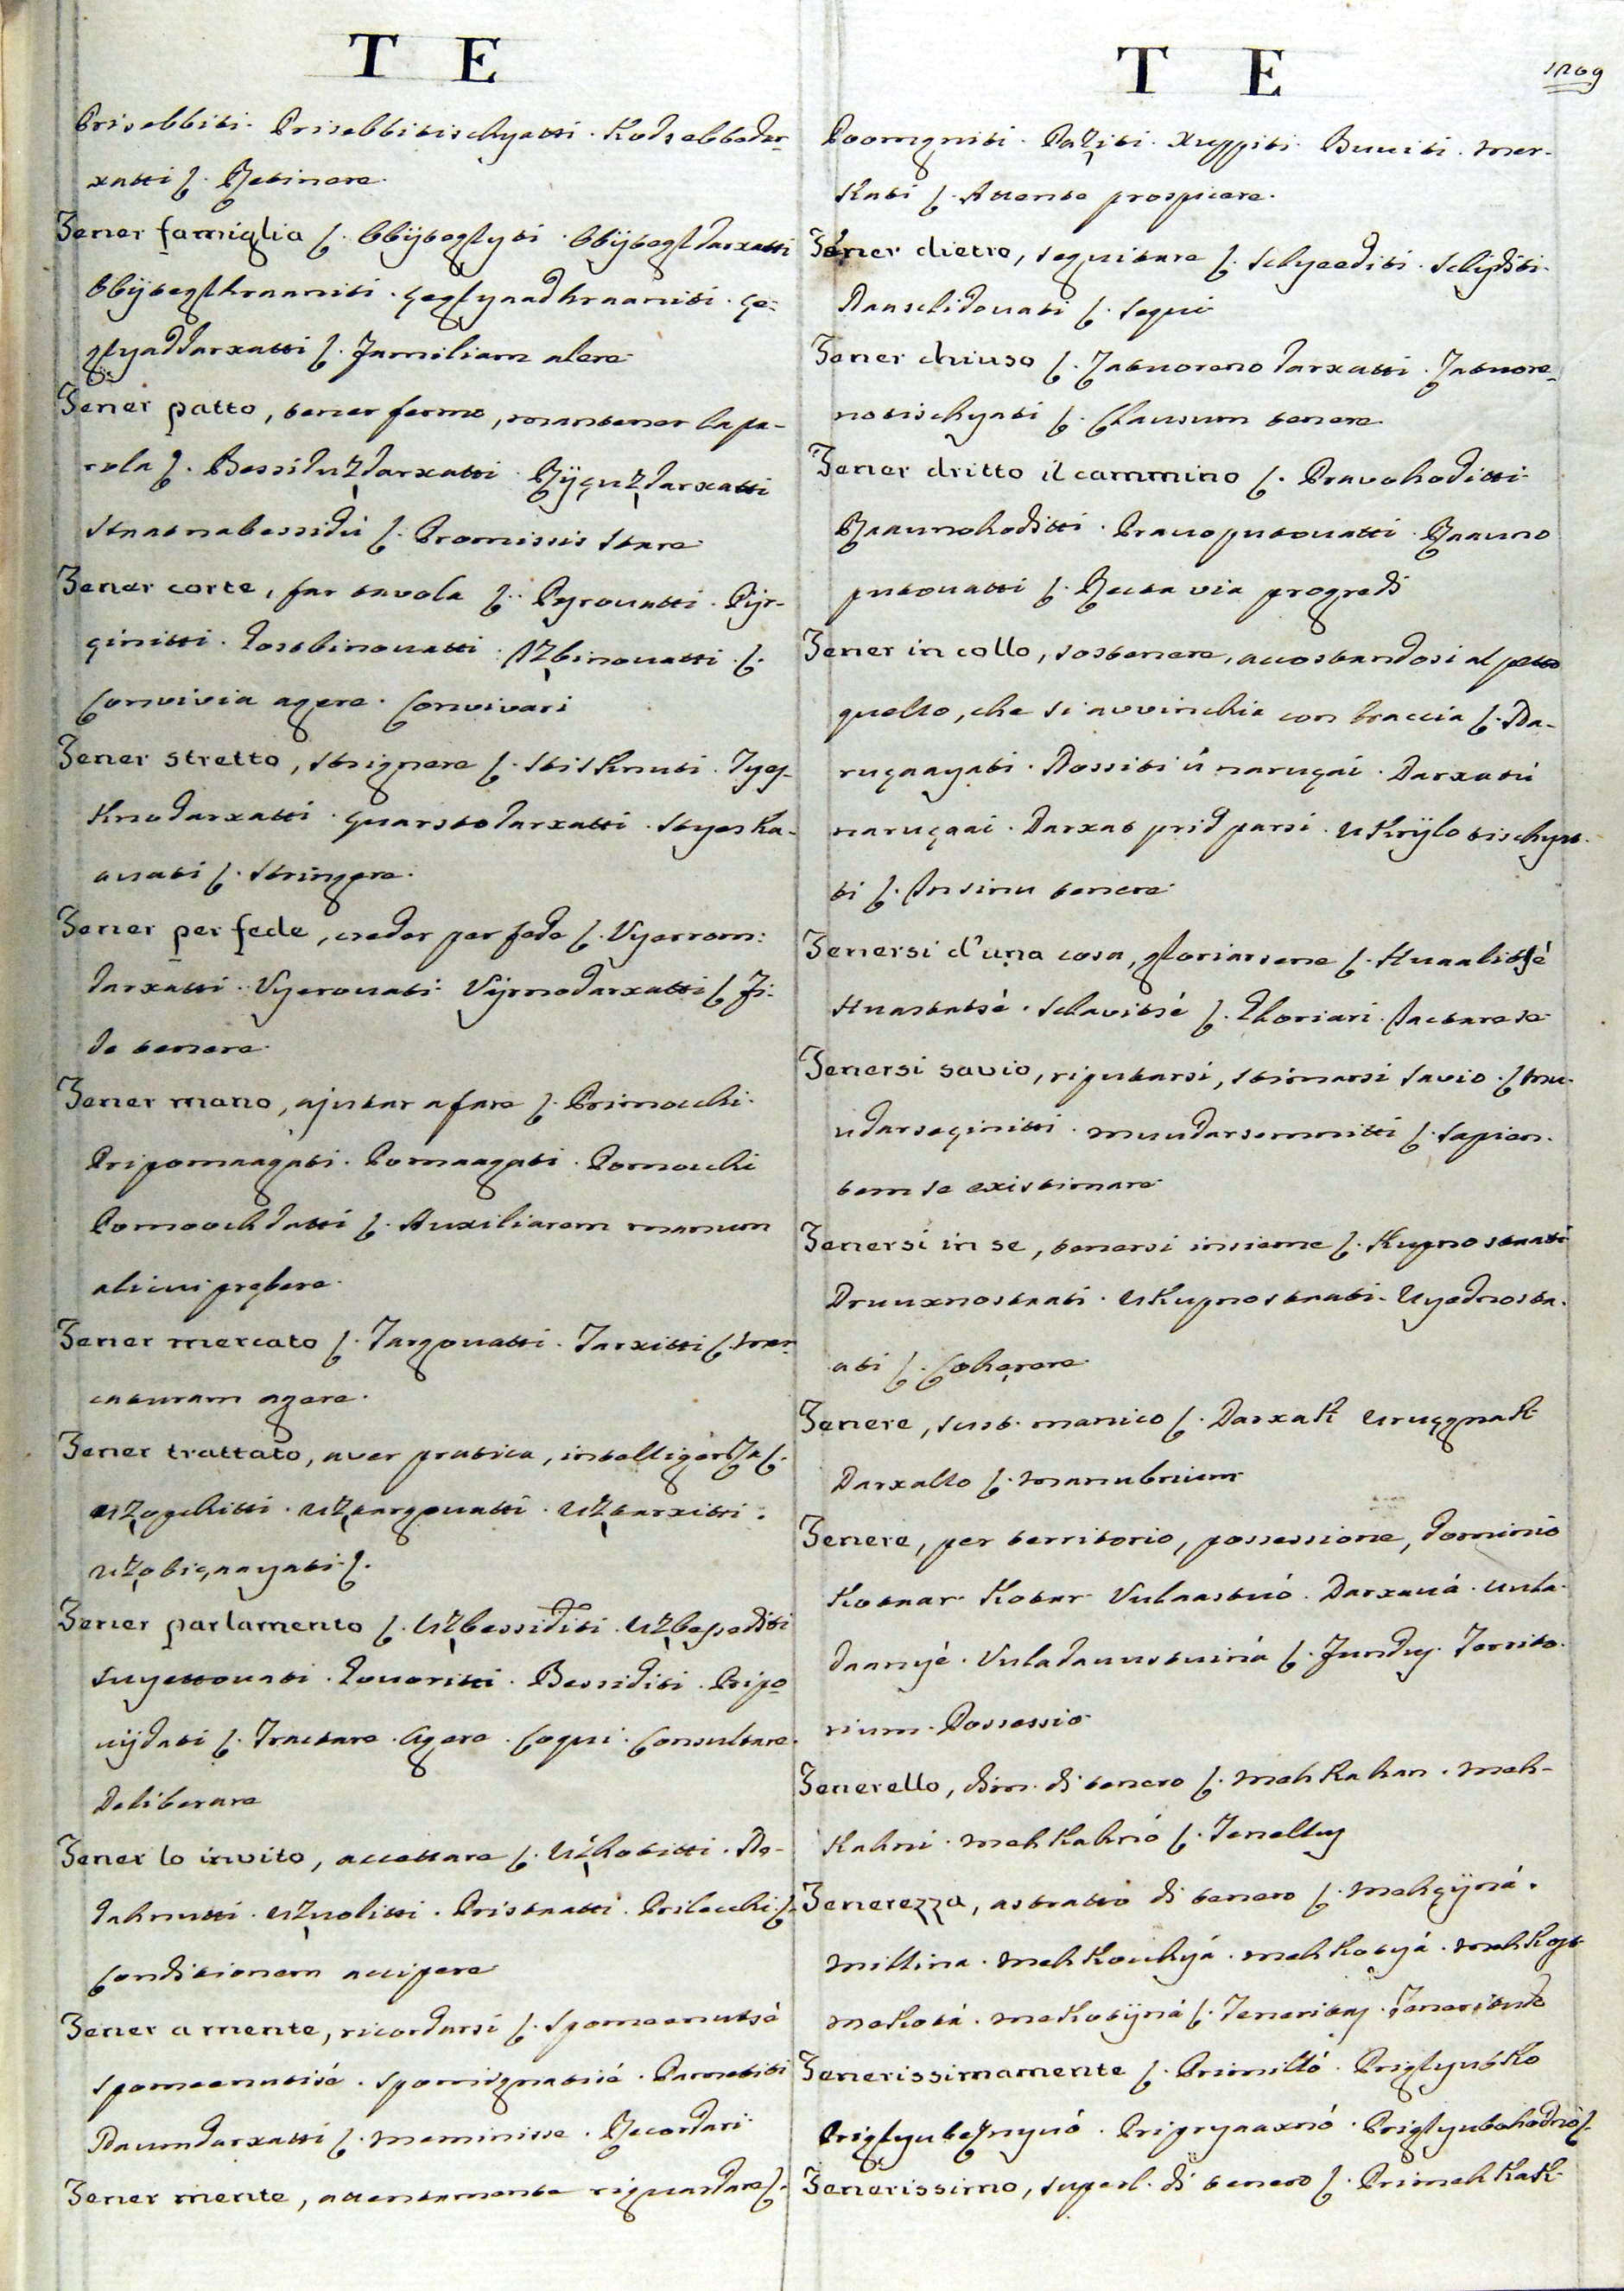 T E
Prisebbiti. Prisebbitischyatti. Kodsebbedar-
xatti ſ. Retinere.
Tener famiglia ſ. Obbijtegſyti. Obbijtegſdarxatti
Obbijtegſhraaniti. çegſyaadhraaniti. çe-
gſyaddarxatti ſ. Familiam alere.
Tener patto, tener fermo, mantener la pa-
rola ſ. Bessiduzdarxatti. Rijçuzdarxatti
Staatnabessidu ſ. Promissis stare.
Tener corte, far tavola ſ. Pyrovatti. Pijr-
çinitti. Gostbinovatti. Izbinovatti. ſ.
Convivia agere. Convivari
Tener stretto, strignere ſ. Stisknuti. Tyes-
knodarxatti. çuarstodarxatti. Styeska-
avati ſ. Stringere.
Tener per fede, creder per fede ſ. Vyerrom:
darxatti. Vyerovati. Vijrnodarxatti ſ. Fi-
de tenere.
Tener mano, ajutar a fare ſ. Primocchi.
Pripomaagati. Pomaagati. Pomocchi
Pomoochdatti ſ. Auxiliarem manum
alicui prębere.
Tener mercato ſ. Targovatti. Tarxitti ſ. Mer-
caturam agere.
Tener trattato, aver pratica, intelligenza ſ.
uzogchitti. uztargovatti. uztarxitti.
uzobiçaayati. ſ.
Tener parlamento ſ. Uzbessiditi. Uzbesediti
Suyettovati. Govoritti. Bessiditi. Pripo
uijdati ſ. Tractare. Agere. Loqui. Consultare.
Deliberare
Tener lo invito, accettare ſ. Uzhotitti. Do-
dahnutti. uzvolitti. Pristaatti. Prilecchi. ſ.
Conditionem accipere
Tener a mente, ricordarsi ſ. Spomeenutsè
Spomeenutisé. Spomignatisé. Pametiti
Naumdarxatti ſ. Meminisse. Recordari.
Tener mente, attentamente riguardare ſ.
T E
1209
Poomgniti. Paziti. Xuppiti. Buuiti. Mer-
kati ſ. Attente prospicere.
Tener dietro, seguitare ſ. Schyeediti. Schijditi.
Naaschidovati ſ. Sequi
Tener chiuso ſ. Zatvorenodarxatti. Zatvore-
notischyati ſ. Clausum tenere.
Tener dritto il cammino ſ. Pravohoditti.
Raavnohoditti. Pravoputovatti. Raavno
putovatti ſ. Recta via progredi
Tener in collo, sostenere, accostandosi al petto
quello, che si avvinchia con braccia ſ. Na-
ruçaayati. Nossiti ù naruçai. Darxatiù
naruçaai. Darxat prid parsi. Ukrijlo tischya-
ti ſ. In sinu tenere.
Tenersi d'una cosa, gloriarsene ſ. Huaalitsé
Huastatsè. Schavitsè ſ. Gloriari. Jactare se
Tenersi savio, riputarsi, stimarsi savio. ſ. Mu-
udarseçinitti. Muudarsemnitti ſ. Sapien-
tem se existimare.
Tenersi in se, tenersi insieme ſ. Kupnostaati
Druuxnostaati. Ukupnostaati. Uyednosta-
ati ſ. Cohęrere.
Tenere, sust. manico ſ. Darxak uruçgnak
Darxallo ſ. Manubrium
Tenere, per territorio, possessione, dominio
Kotaar. Kotar. Vulaastuó. Darxavá. uula-
daanyé. Vuladauustuiná ſ. Fundus. Territo-
rium. Possessio.
Tenerello, dim. di tenero ſ. Mehkahan. Meh-
kahni. Mehkahnó ſ. Tenellus
Tenerezza, astratto di tenero ſ. Mehçijná.
Millina. Mehkochyá. Mehkotyá. Mehkost
Mekotá. Mekotijná ſ. Teneritas. Teneritudo
Tenerissimamente ſ. Primilló. Prigſyubko
Prigſyubeznyvó. Pripryaaxnó. Prigſyubohodnò ſ.
Tenerissimo, superl. di tenero ſ. Primehkak.